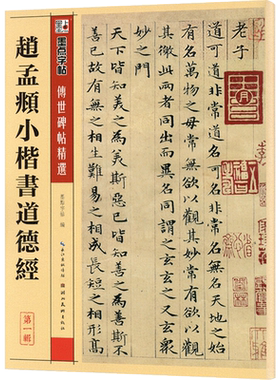 墨点字帖
傳世碑帖精選
趙孟頫小楷書道德經
墨點字帖 編
第一輯
老子
道可道非常道名可名非常名無名天地之始
有名萬物之母常無欲以觀其妙常有欲以觀
其徼此兩者同出而異名同謂之玄玄之又玄衆
妙之門
天下皆知美之為美斯惡已皆知善之為善不
善已故有無之相生難易之相成長短之相形高